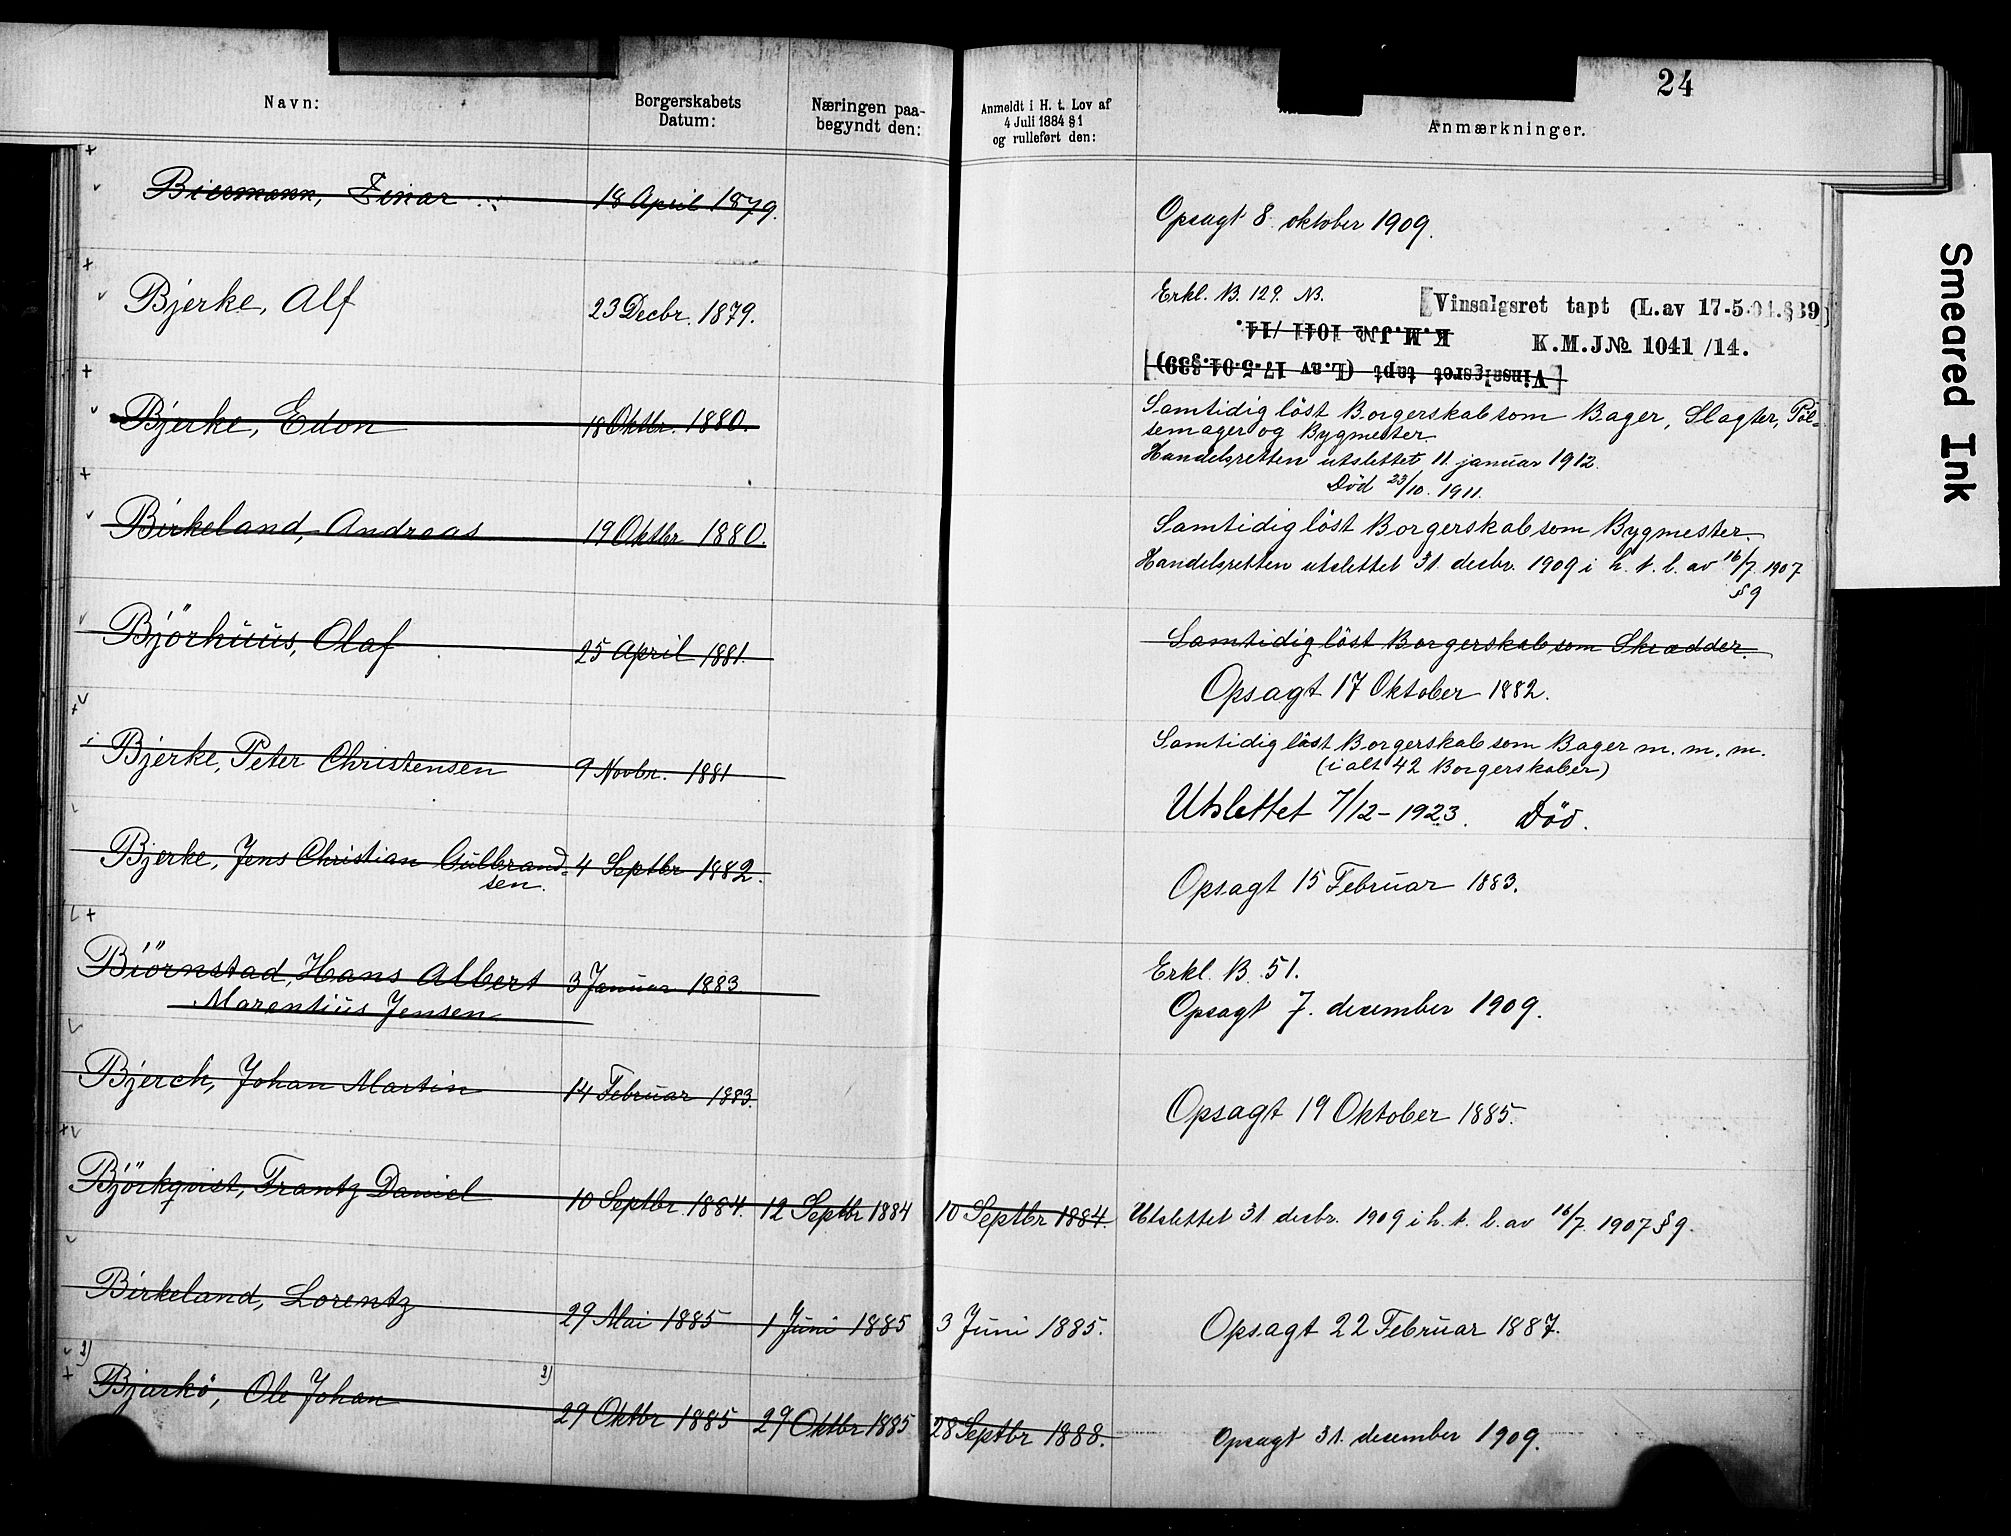 24
Navn:
Borgerskabets Datum:
Næringen paa-
begyndt den:
Anmeldt i H. t. Lov af
4 Juli 1884 § 1
og rulleført den:
Anmærkninger.
Smeared Ink
Einar 18 April 1879.
Opsagt 8. oktober 1909.
Bjerke, Alf 23 Decbr. 1879.
Erkl. B. 129. NB.
[Vinsalgsret tapt (L.av 17-5-04.§39)
K.M.J№ 1041/14.
K.M.J№ 1041/14.
[Vinsalgsret tapt (L.av 17.5.04.§39)]
Bjerke, Edon 18 Oktbr. 1880.
Samtidig löst Borgerskab som Bager, Slagter, Pöl-
semager og Bygmester.
Handelsretten utslettet 11. januar 1912.
Död 23/10. 1911.
Birkeland, Andreas 19 Oktbr 1880.
Samtidig löst Borgerskab som Bygmester.
Handelsretten utslettet 31. desbr. 1909 i h. t. l. av 16/7. 1907
§ 9
Björhuus, Olaf 25 April 1881.
Samtidig löst Borgerskab som Skrædder.
Opsagt 17 Oktober 1882.
Bjerke, Peter Christensen 9 Novbr. 1881
Samtidig löst Borgerskab som Bager m. m. m.
(i alt 42 Borgerskaber)
Utslettet 7/12-1923. Död.
Bjerke, Jens Christian Gulbrand- 4 Septbr 1882.
sen.
Opsagt 15 Februar 1883.
Björnstad, Hans Albert 3 Januar 1883
Marentius Jensen
Erkl. B. 51.
Opsagt 7. desember 1909.
Bjerch, Johan Martin 14 Februar 1883.
Opsagt 19 Oktober 1885.
Björkqvist, Frantz Daniel 10 Septbr. 1884. 12 Septbr 1884 10 Septbr 1884. Utslettet 31. desbr. 1909 i h. t. l. av 16/7. 1907 § 9.
Birkeland, Lorentz 29 Mai 1885 1 Juni 1885 3 Juni 1885. Opsagt 22 Februar 1887.
2) Bjarkö, Ole Johan 2) 29 Oktbr 1885 29 Oktbr 1885 28 Septbr 1888. Opsagt 31. desember 1909.